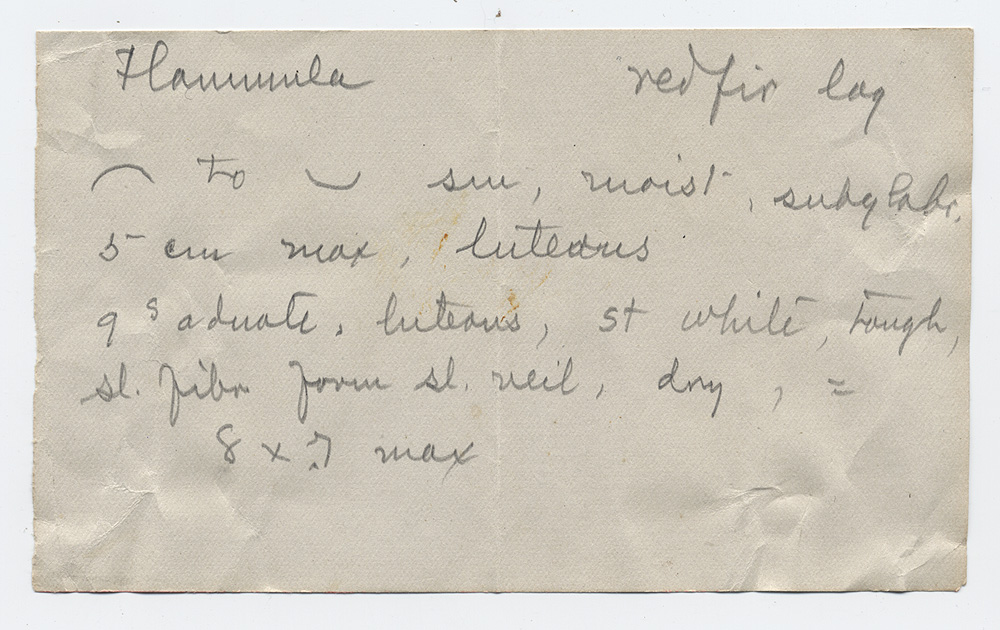 Flammula red fir log
⌒ to ⌣ sm, moist, subglabr,
5 cm max, luteous
gs adnate, luteous, st white, tough,
sl. fibr form sl. veil, dry, =
8 x .7 max